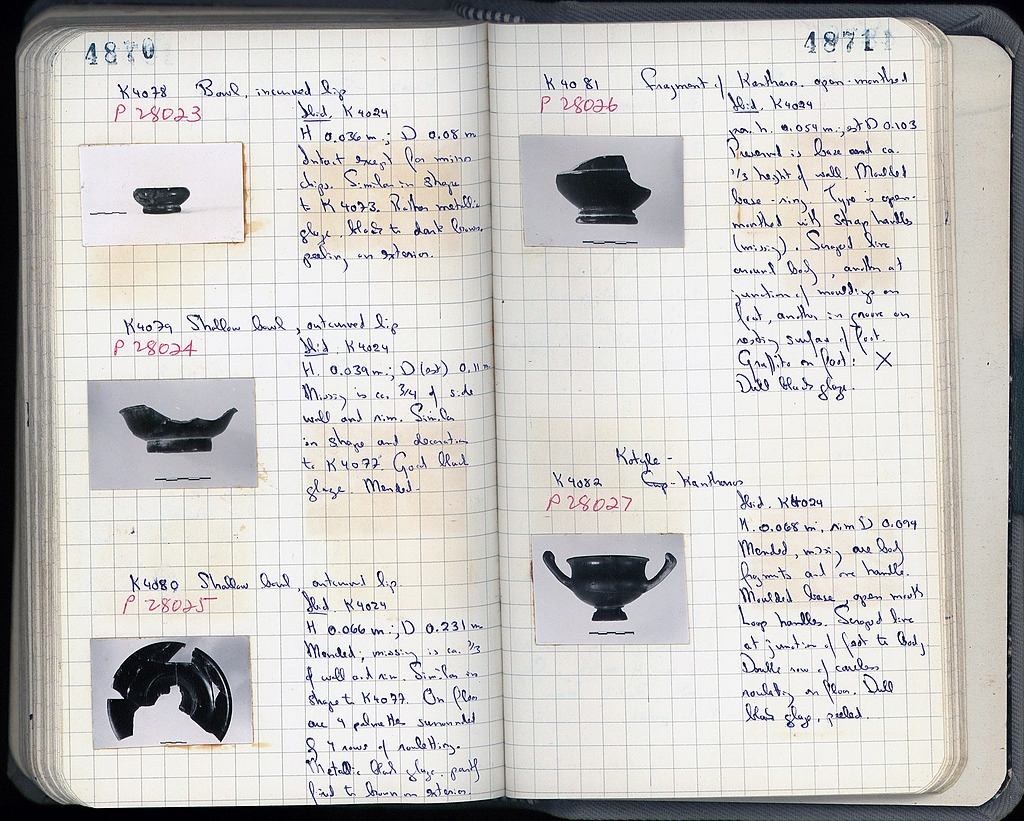 4870
K4078 Bowl, incurved lip
P 28023
Ibid. K4024
H 0.036 m.; D 0.08 m
Intact except for minor
chips. Similar in shape
to K4073. Rather metallic
glaze, black to dark brown,
peeling on exterior.
K4079 Shallow bowl, outcurved lip
P 28024
Ibid. K4024
H. 0.039 m.; D (est) 0.11 m
Missing is ca. 3/4 of side
wall and rim. Similar
in shape and decoration
to K4077. Good black
glaze. Mended.
K4080 Shallow bowl, outcurved lip
P 28025
Ibid. K4024
H 0.066 m.; D 0.231 m
Mended, missing is ca. 1/3
of wall and rim. Similar in
shape to K4077. On floor
are 4 palmettes surrounded
by 4 rows of rouletting.
Metallic black glaze, partly
fired to brown on exterior.
4871
K4081 Fragment of Kantharos, open-mouthed
P 28026
Ibid. K4024
pres. h. 0.054 m.; est D 0.103
Preserved is base and ca.
1/3 height of wall. Moulded
base-ring. Type is open-
mouthed with strap handles
(missing). Scraped line
around body, another at
junction of mouldings on
foot, another in groove on
resting surface of foot.
Graffito on foot: X
Dull black glaze.
Kotyle-
K4082 Cup-Kantharos
P 28027
Ibid. K4024
H. 0.068 m, rim D 0.094
Mended, missing are body
fragments and one handle.
Moulded base, open mouth
Loop handles. Scraped line
at junction of foot to body
Double row of careless
rouletting on floor. Dull
black glaze, peeled.